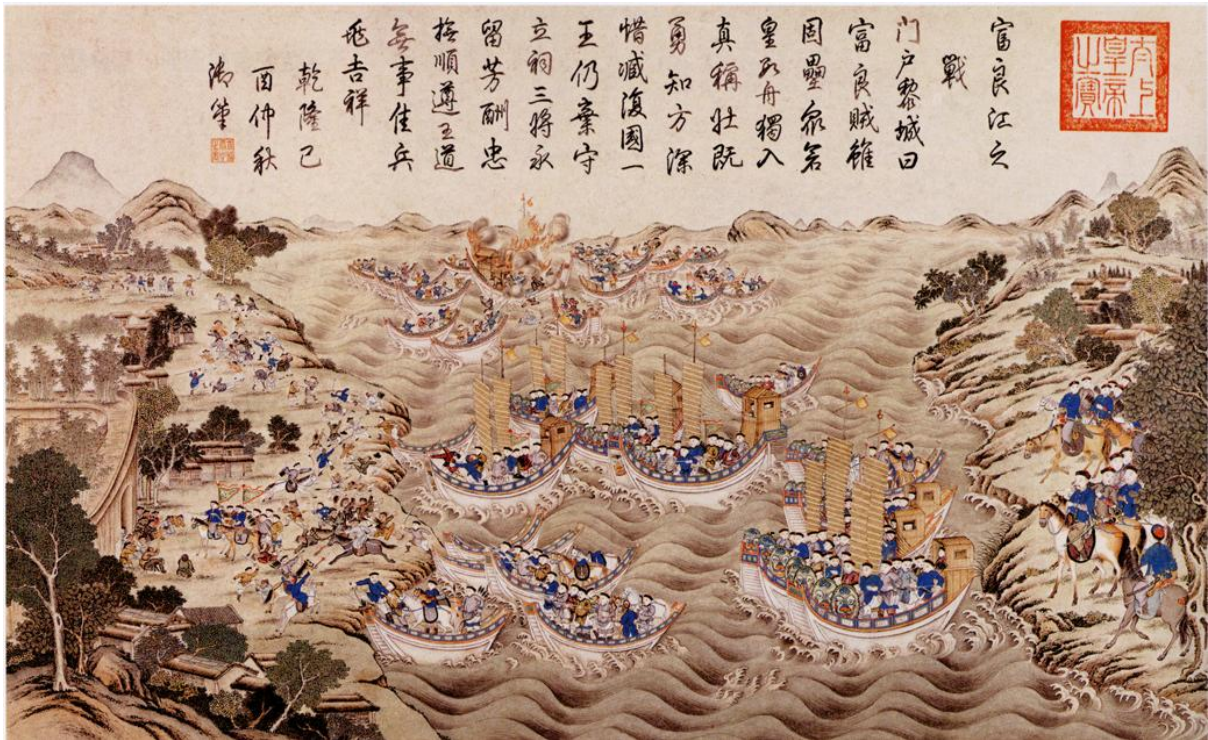 太上
皇帝
之寶
富良江之
戰
门户黎城曰
富良賊雖
固壘眾若
皇舟獨入
真稱壯既
勇知方深
惜臧復國一
王仍棄守
立祠三將永
留芳酬忠
撫順遵王道
無事佳兵
吉祥
乾隆己
酉仲秋
御筆